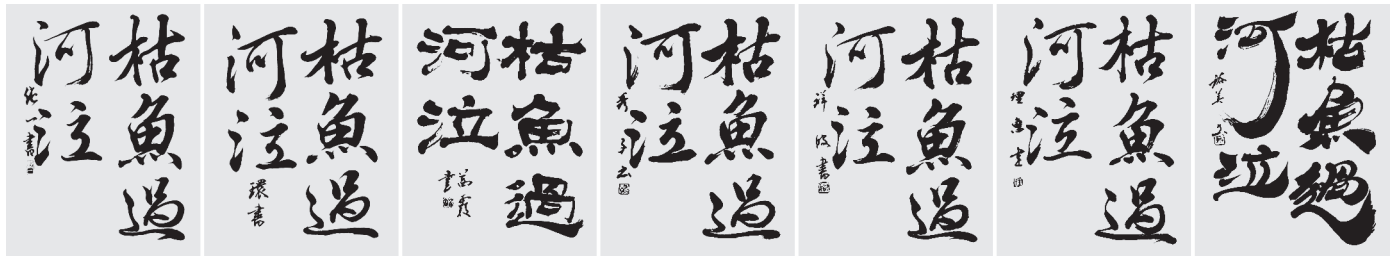 枯魚過
河泣
枯魚過
河泣
環書
枯魚過
河泣
枯魚過
河泣
秀子書
枯魚過
河泣
祥波書
枯魚過
河泣
理恵書
枯魚過
河泣